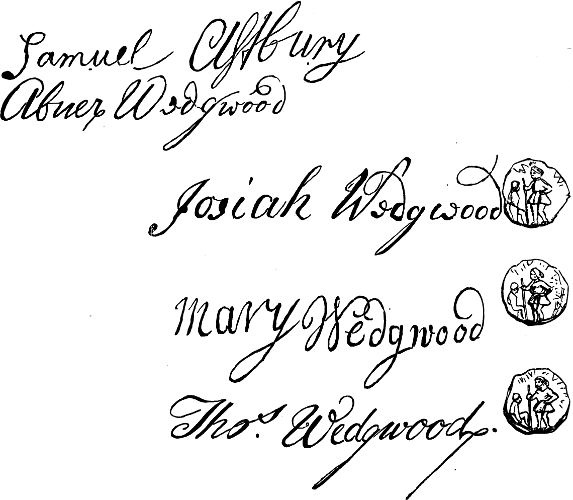 Samuel Astbury
Abner Wedgwood
Josiah Wedgwood
Mary Wedgwood
Thos. Wedgwood.